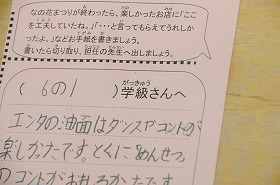 なの花まつりが終わったら、楽しかったお店に「ここ
を工夫していたね。」「・・・と言ってもらえてうれしかっ
たよ。」などお手紙を書きましょう。
書いたら切り取り、担任の先生へ出しましょう。
(6の1)学級さんへ
エンタの油面はダンスやコントが
楽しかったです。とくにめんせつ
のコントがおもしろかったです